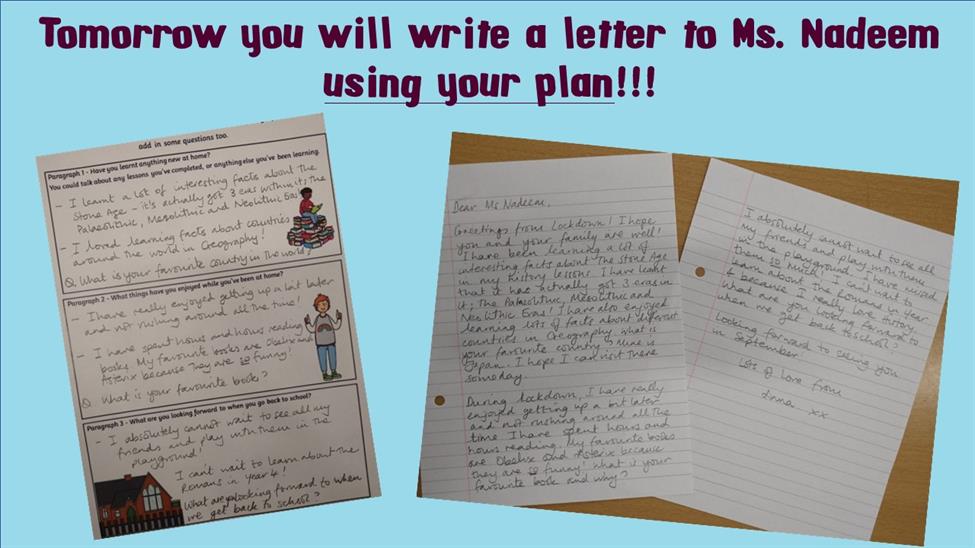 Tomorrow you will write a letter to Ms. Nadeem
using your plan!!!
add in some questions too.
Paragraph 1 - Have you learnt anything new at home?
You could talk about any lessons you've completed, or anything else you've been learning.
- I learnt a lot of interesting facts about the
Stone Age - it's actually got 3 eras within it; the
Palaeolithic, Mesolithic and Neolithic Eras!
- I loved learning facts about countries
around the world in Geography!
Q. What is your favourite country in the world?
Paragraph 2 - What things have you enjoyed while you've been at home?
- I have really enjoyed getting up a bit later
and not rushing around all the time!
- I have spent hours and hours reading
books. My favourite books are Obelix and
Asterix because they are so funny!
Q. What is your favourite book?
Paragraph 3 - What are you looking forward to when you go back to school?
- I absolutely cannot wait to see all my
friends and play with them in the
playground!
I can't wait to learn about the
Romans in Year 4!
What are you looking forward to when
we get back to school?
Dear Ms Nadeem,
Greetings from Lockdown! I hope
you and your family are well!
I have been learning a lot of
interesting facts about the Stone Age
in my history lessons. I have learnt
that it has actually got 3 eras in
it; the Palaeolithic, Mesolithic and
Neolithic Eras! I have also enjoyed
learning lots of facts about different
countries in Geography. What is
your favourite country? Mine is
Japan. I hope I can visit there
someday.
During lockdown, I have really
enjoyed getting up a bit later
and not rushing around all the
time. I have spent hours and
hours reading. My favourite books
are Obelix and Asterix because
they are so funny! What is your
favourite book and why?
I absolutely cannot wait to see all
my friends and play with them
in the playground. I have missed
them so much! I can't wait to
learn about the Romans in Year
4 because I really love history.
What are you looking forward to
when we get back to school?
Looking forward to seeing you
in September!
Lots of love from
xx